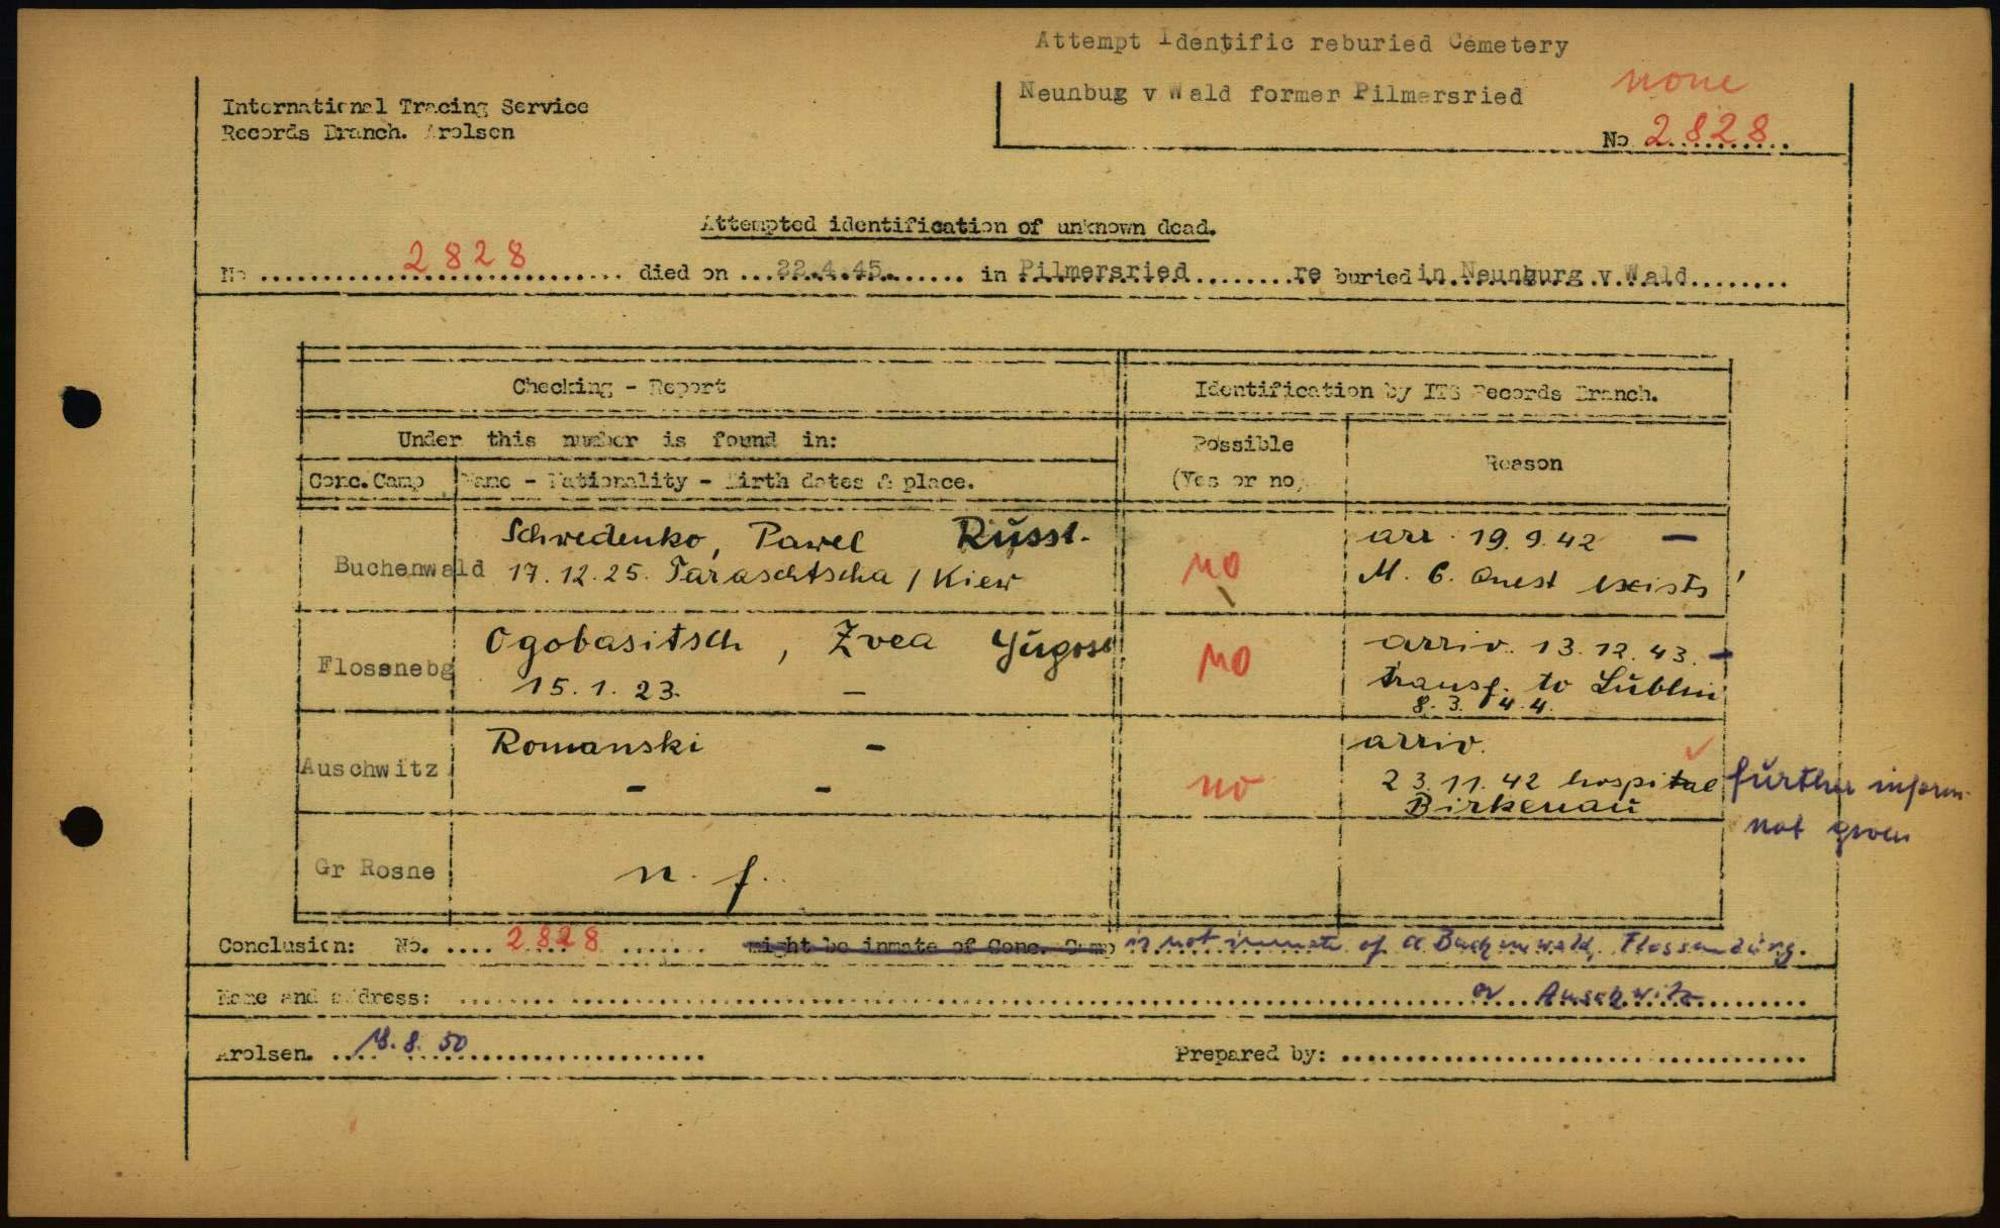 Attempt Identific reburied Cemetery
Neunbug v Wald former Pilmersried
none
No 2828
International Tracing Service
Records Branch. Arolsen
Attempted identification of unknown dead.
No 2828 died on 22.4.45. in Pilmersried re buried in Neunburg v. Wald
Checking - Report
Identification by ITS Records Branch.
Under this number is found in:
Possible
(Yes or no)
Reason
Conc. Camp
Name - Nationality - Birth dates & place.
Buchenwald
Schwedenko, Pawel Russl.
17.12.25. Taraschtscha / Kiew
no
arr. 19.9.42 -
M. C. Quest exists
Flossnebg
Ogobasitsch, Zvea Yugosl
15.1.23. -
no
arriv. 13.12.43. -
transf. to Lublin
8.3.44.
Auschwitz
Romanski -
- -
no
arriv.
23.11.42 hospital
Birkenau
further inform.
not given
Gr Rosne
n. f.
Conclusion: No. 2828 might be inmate of Conc. Camp is not inmate of a Buchenwald, Flossenbürg.
Name and address: or Auschwitz
Arolsen. 18.8.50
Prepared by: